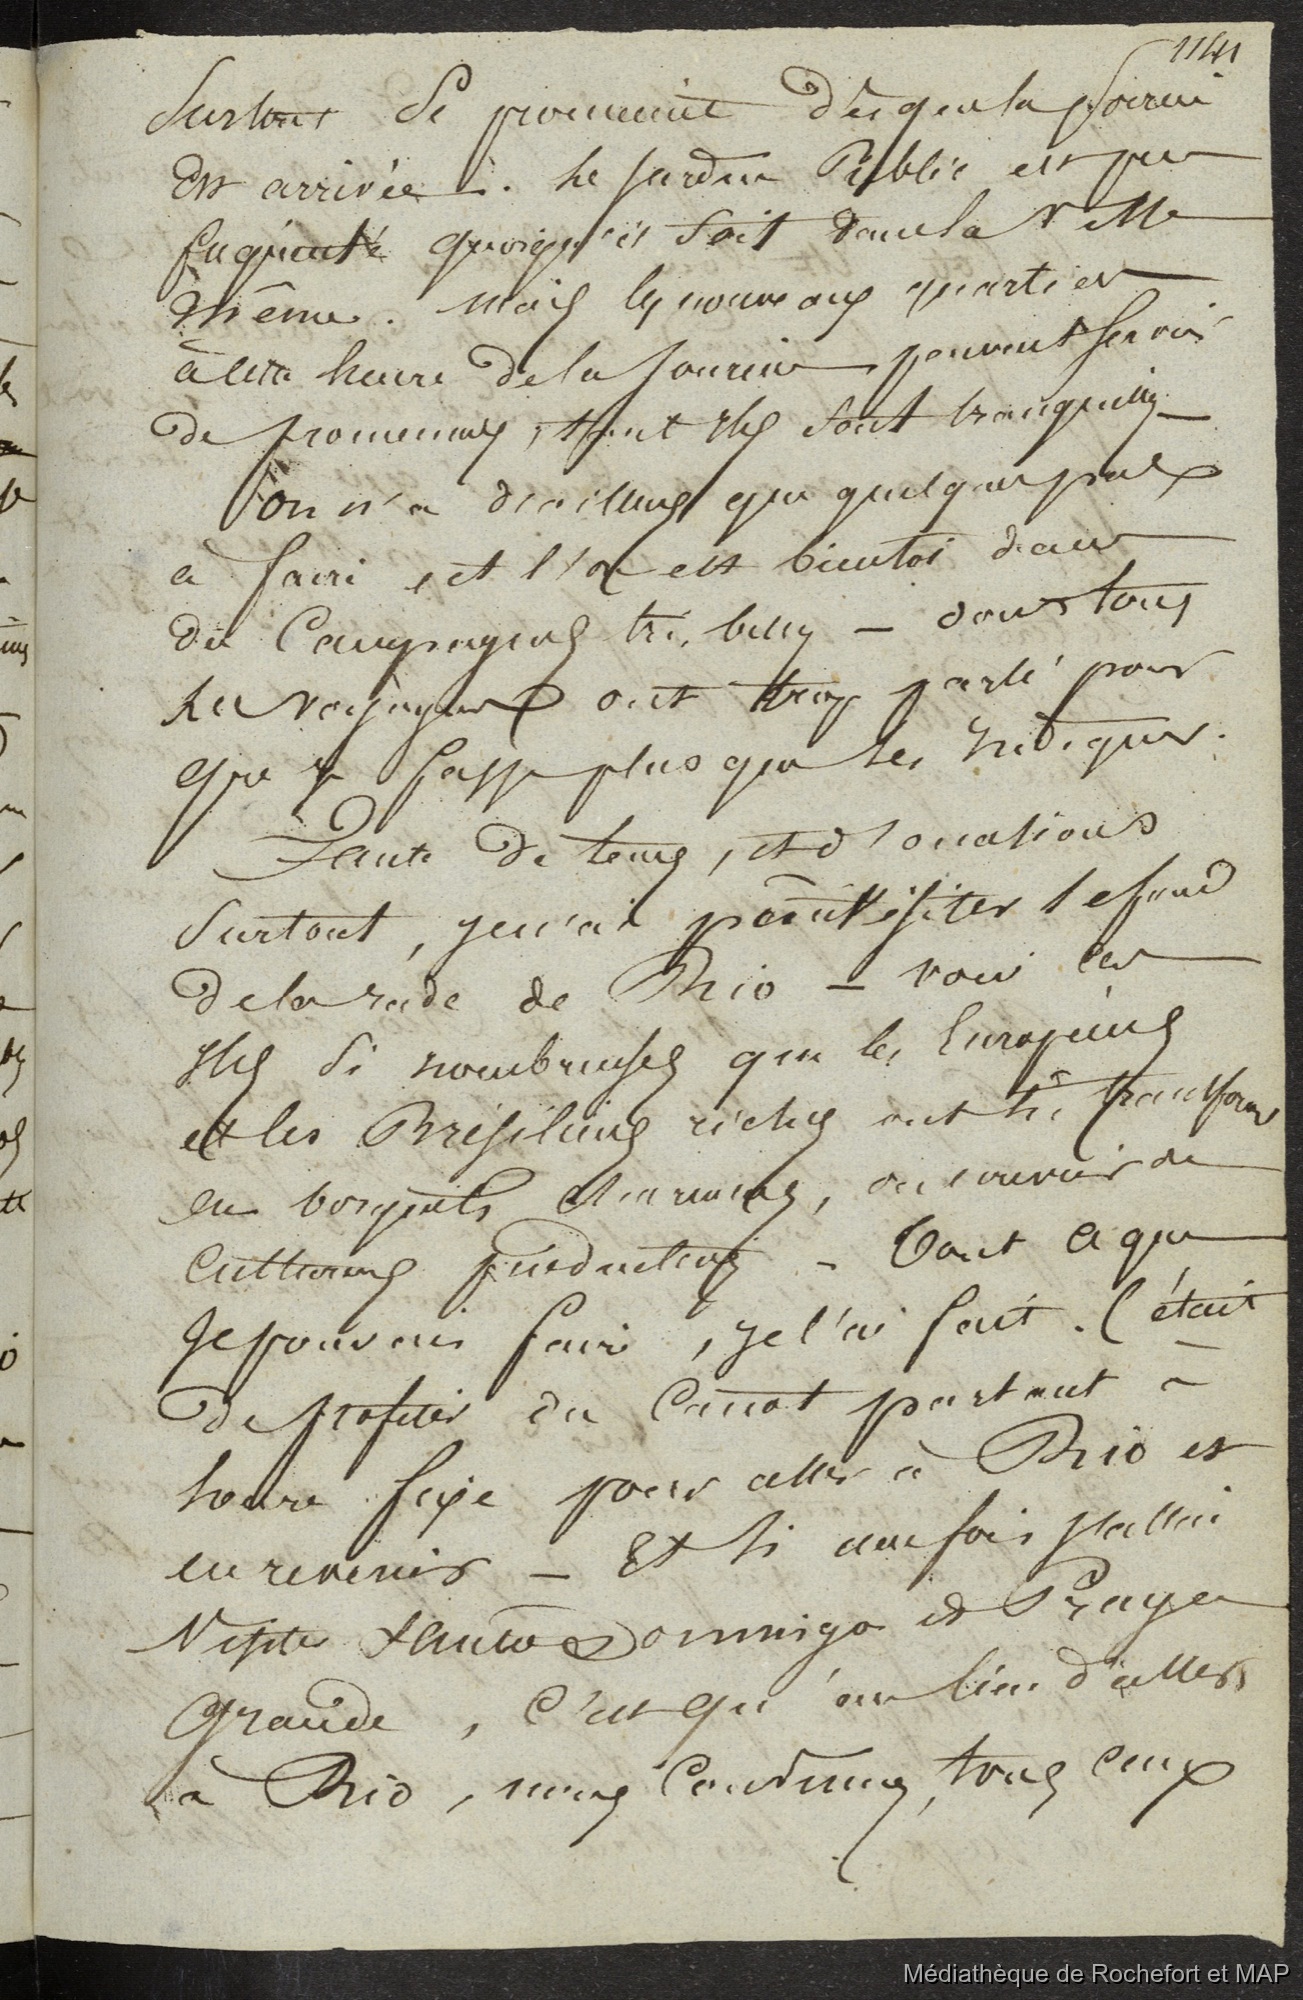 1141
Surtout se promènent dès que la soirée
est arrivée. Le Jardin Public est peu
fréquenté quoiqu'il soit dans la ville
même. Mais les nouveaux quartiers
à cette heure de la journée peuvent servir
de promenades, tant ils sont tranquilles
On n'a d'ailleurs que quelques pas
à faire, et l'on est bientôt dans
des Campagnes très belles – dont tous
les voyageurs ont trop parlé pour
que je fasse plus que les indiquer.
Faute de tems, et d'occasions
surtout, je n'ai point visiter le fond
de la rade de Rio – voir ces
Iles si nombreuses que les Européens
et les Brésiliens riches ont transformé
en bosquets charmans, ou couvert de
cultures productives – Tout ce que
Je pouvais faire, je l'ai fait. C'était
de profiter du Canot partant à
heure fixe pour aller à Rio et
en revenir – Et si une fois j'allai
Visiter Santo Domingo et Praya
Grande, c'est qu'au lieu d'aller
à Rio, nous Convînmes, tous ceux
Médiathèque de Rochefort et MAP